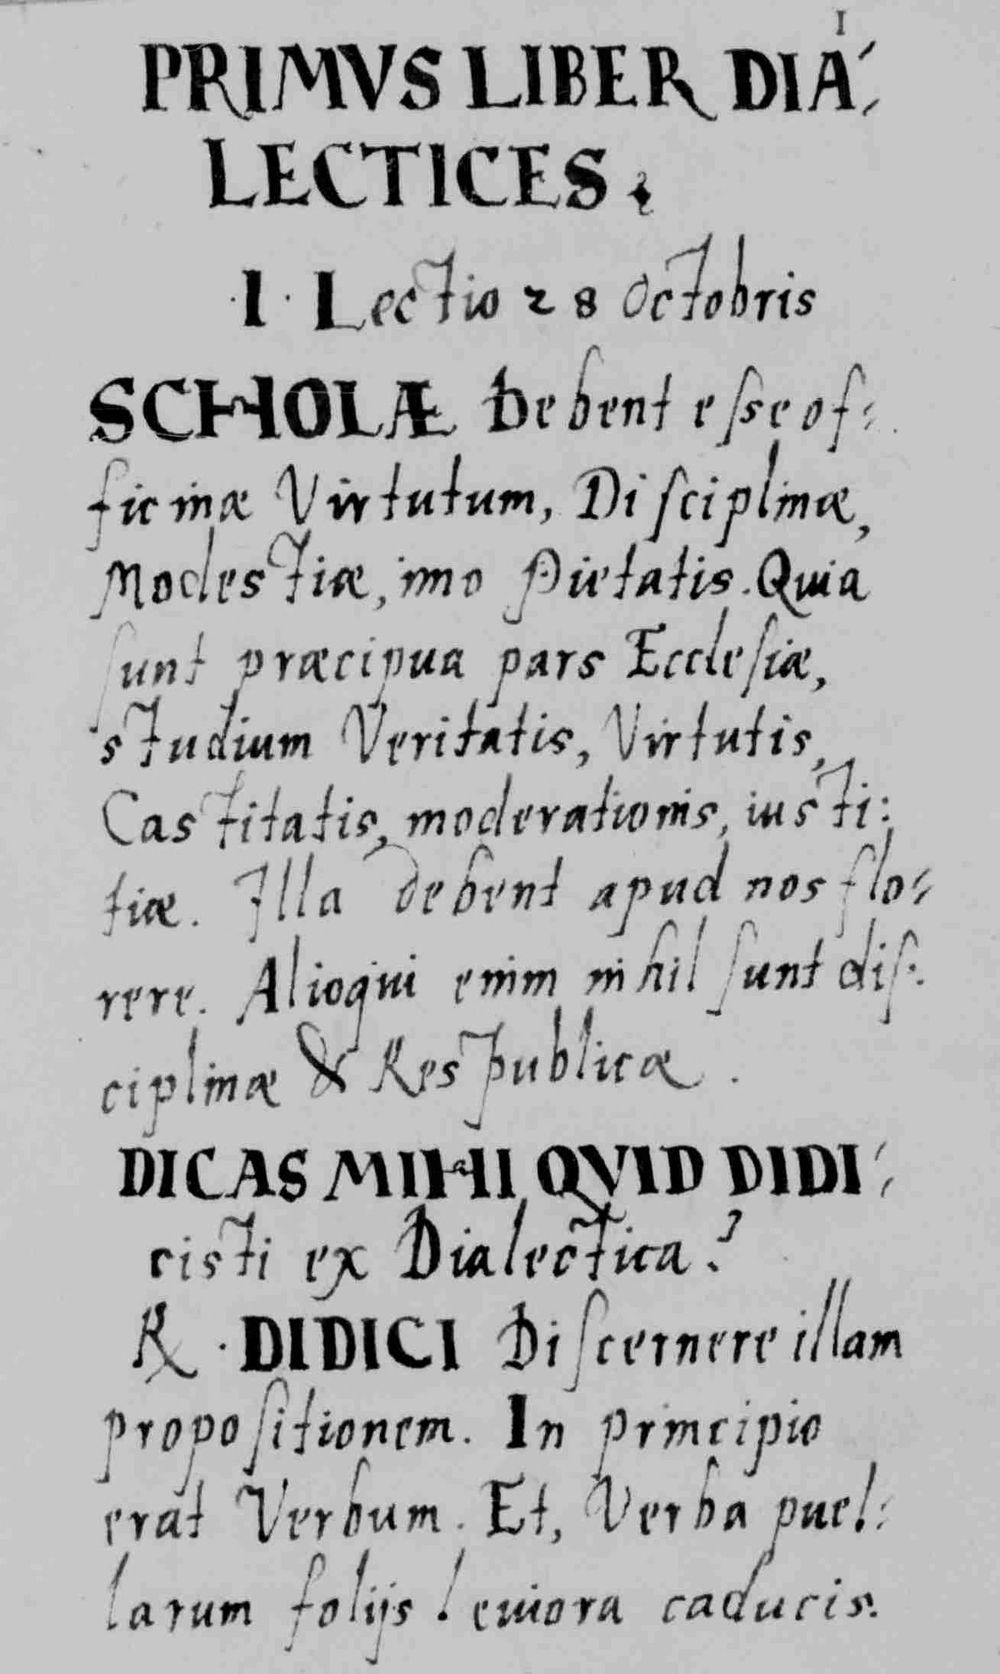 1
PRIMVS LIBER DIA⸗
LECTICES.
·I· Lectio 28 Octobris
SCHOLÆ Debent esse of⸗
ficinæ Virtutum, Disciplinæ,
Modestiæ, imo Pietatis. Quia
sunt præcipua pars Ecclesiæ,
studium Veritatis, Virtutis,
Castitatis, moderationis, iusti:
tiæ. Illa debent apud nos flo⸗
rere. Alioqui enim nihil sunt dis⸗
ciplinæ & Respublicæ.
DICAS MIHI QVID DIDI⸗
cisti ex Dialectica?
℞ · DIDICI Discernere illam
propositionem. In principio
erat Verbum. Et, Verba puel⸗
larum folijs leuiora caducis.